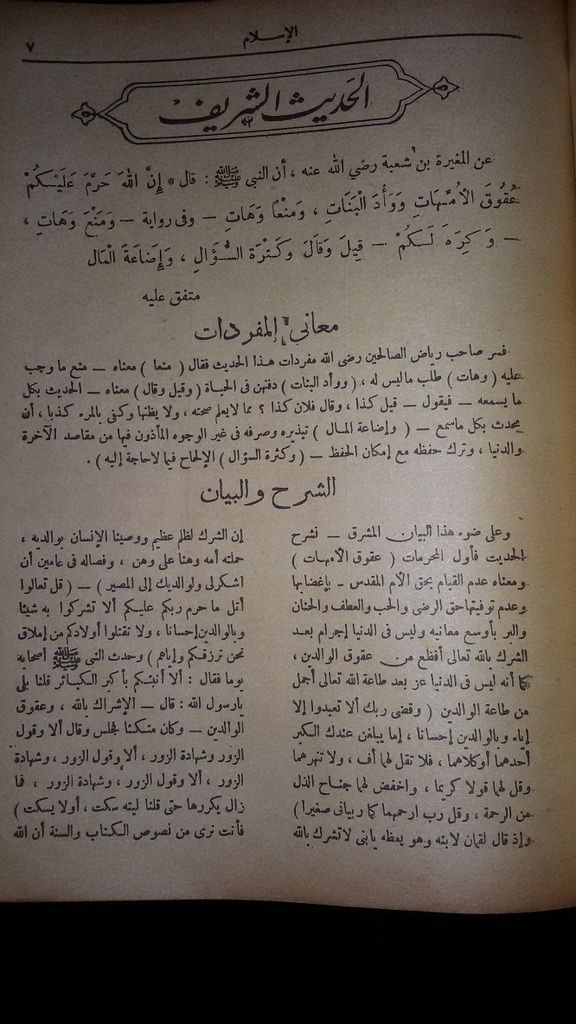 الإسلام
٧
الحديث الشريف
عن المغيرة بن شعبة رضي الله عنه ، أن النبي ﷺ : قال « إِنَّ اللهَ حَرَّمَ عَلَيْكُمْ
عُقُوقَ الأُمَّهَاتِ وَوَأْدَ الْبَنَاتِ ، وَمَنْعاً وَهَاتِ — وفى رواية — وَمَنْعَ وَهَاتِ ،
— وَكَرِهَ لَكُمْ — قِيلَ وَقَالَ وَكَثْرَةَ السُّؤَالِ ، وَإِضَاعَةَ الْمَال
متفق عليه
معاني المفردات
فسر صاحب رياض الصالحين رضى الله مفردات هذا الحديث فقال ( منعا ) معناه — منع ما وجب
عليه ( وهات ) طلب ماليس له ، ( ووأد البنات ) دفنهن فى الحياة ( وقيل وقال ) معناه — الحديث بكل
ما يسمعه — فيقول — قيل كذا ، وقال فلان كذا ؟ مما لايعلم صحته ، ولا يظنها وكفى بالمرء كذبا ، أن
يحدث بكل ماسمع — ( وإضاعة المال ) تبذيره وصرفه فى غير الوجوه المأذون فيها من مقاصد الآخرة
والدنيا ، وترك حفظه مع إمكان الحفظ — ( وكثرة السؤال ) الإلحاح فيما لاحاجة إليه ) .
الشرح والبيان
وعلى ضوء هذا البيان المشرق — نشرح
الحديث فأول المحرمات ( عقوق الأمهات )
ومعناه عدم القيام بحق الأم المقدس - بإغضابها
وعدم توفيتهاحق الرضى والحب والعطف والحنان
والبر بأوسع معانيه وليس فى الدنيا إجرام بعد
الشرك بالله تعالى أفظع من عقوق الوالدين ،
كما أنه ليس فى الدنيا عز بعد طاعة الله تعالى أجمل
من طاعة الوالدين ( وقضى ربك ألا تعبدوا إلا
إياه وبالوالدين إحسانا ، إما يبلغن عندك الكبر
أحدهما أوكلاهما ، فلا تقل لهما أف ، ولا تنهرهما
وقل لهما قولا كريما ، واخفض لهما جناح الذل
من الرحمة ، وقل رب ارحمهما كما ربيانى صغيرا )
وإذ قال لقمان لابنه وهو يعظه يابنى لاتشرك بالله
إن الشرك لظلم عظيم ووصينا الإنسان بوالديه ،
حملته أمه وهنا على وهن ، وفصاله فى عامين أن
اشكرلى ولوالديك إلى المصير ) — ( قل تعالوا
أتل ما حرم ربكم عليكم ألا تشركوا به شيئا
وبالوالدين إحسانا ، ولا تقتلوا أولادكم من إملاق
نحن نرزقكم وإياهم ) وحدث النبى ﷺ أصحابه
يوما فقال : ألا أنبئكم بأكبر الكبائر قلنا بلى
يارسول الله : قال — الإشراك بالله ، وعقوق
الوالدين — وكان متكئا فجلس وقال ألا وقول
الزور وشهادة الزور ، ألا وقول الزور ، وشهادة
الزور ، ألا وقول الزور ، وشهادة الزور ، فما
زال يكررها حتى قلنا ليته سكت ، أولا يسكت )
فأنت ترى من نصوص الكتاب والسنة أن الله